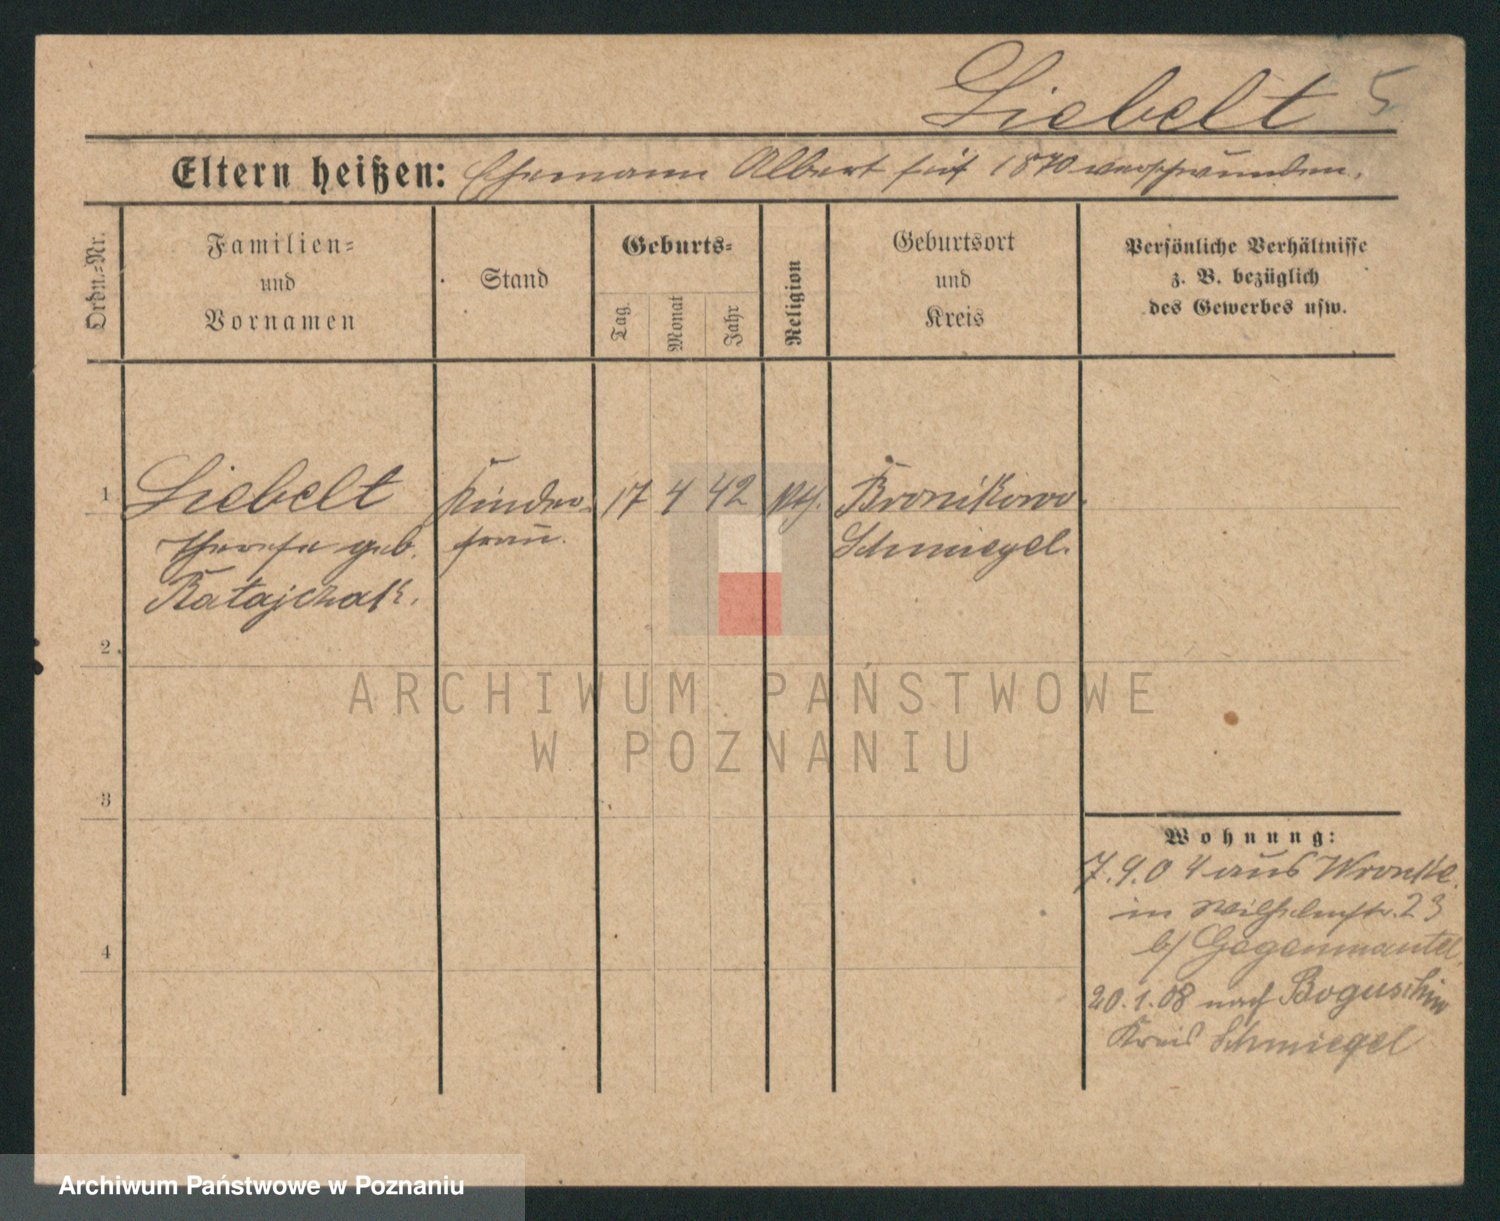 Liebelt 5
Eltern heißen: Ehemann Albert seit 1870 verschwunden.
Ordn.-Nr.
Familien-
und
Vornamen
Stand
Geburts-
Tag
Monat
Jahr
Religion
Geburtsort
und
Kreis
Persönliche Verhältnisse
z. B. bezüglich
des Gewerbes usw.
1 Liebelt Kinder- 17 4 42 kth. Bronikowo
Therese geb. frau. Schmiegel.
Ratajczak.
2
3
4
Wohnung:
7.9.04 aus Wronke.
in Wilhelmstr. 23
b/ Gegenmantel,
20.1.08 nach Boguschin
Kreis Schmiegel
ARCHIWUM PAŃSTWOWE
W POZNANIU
Archiwum Państwowe w Poznaniu